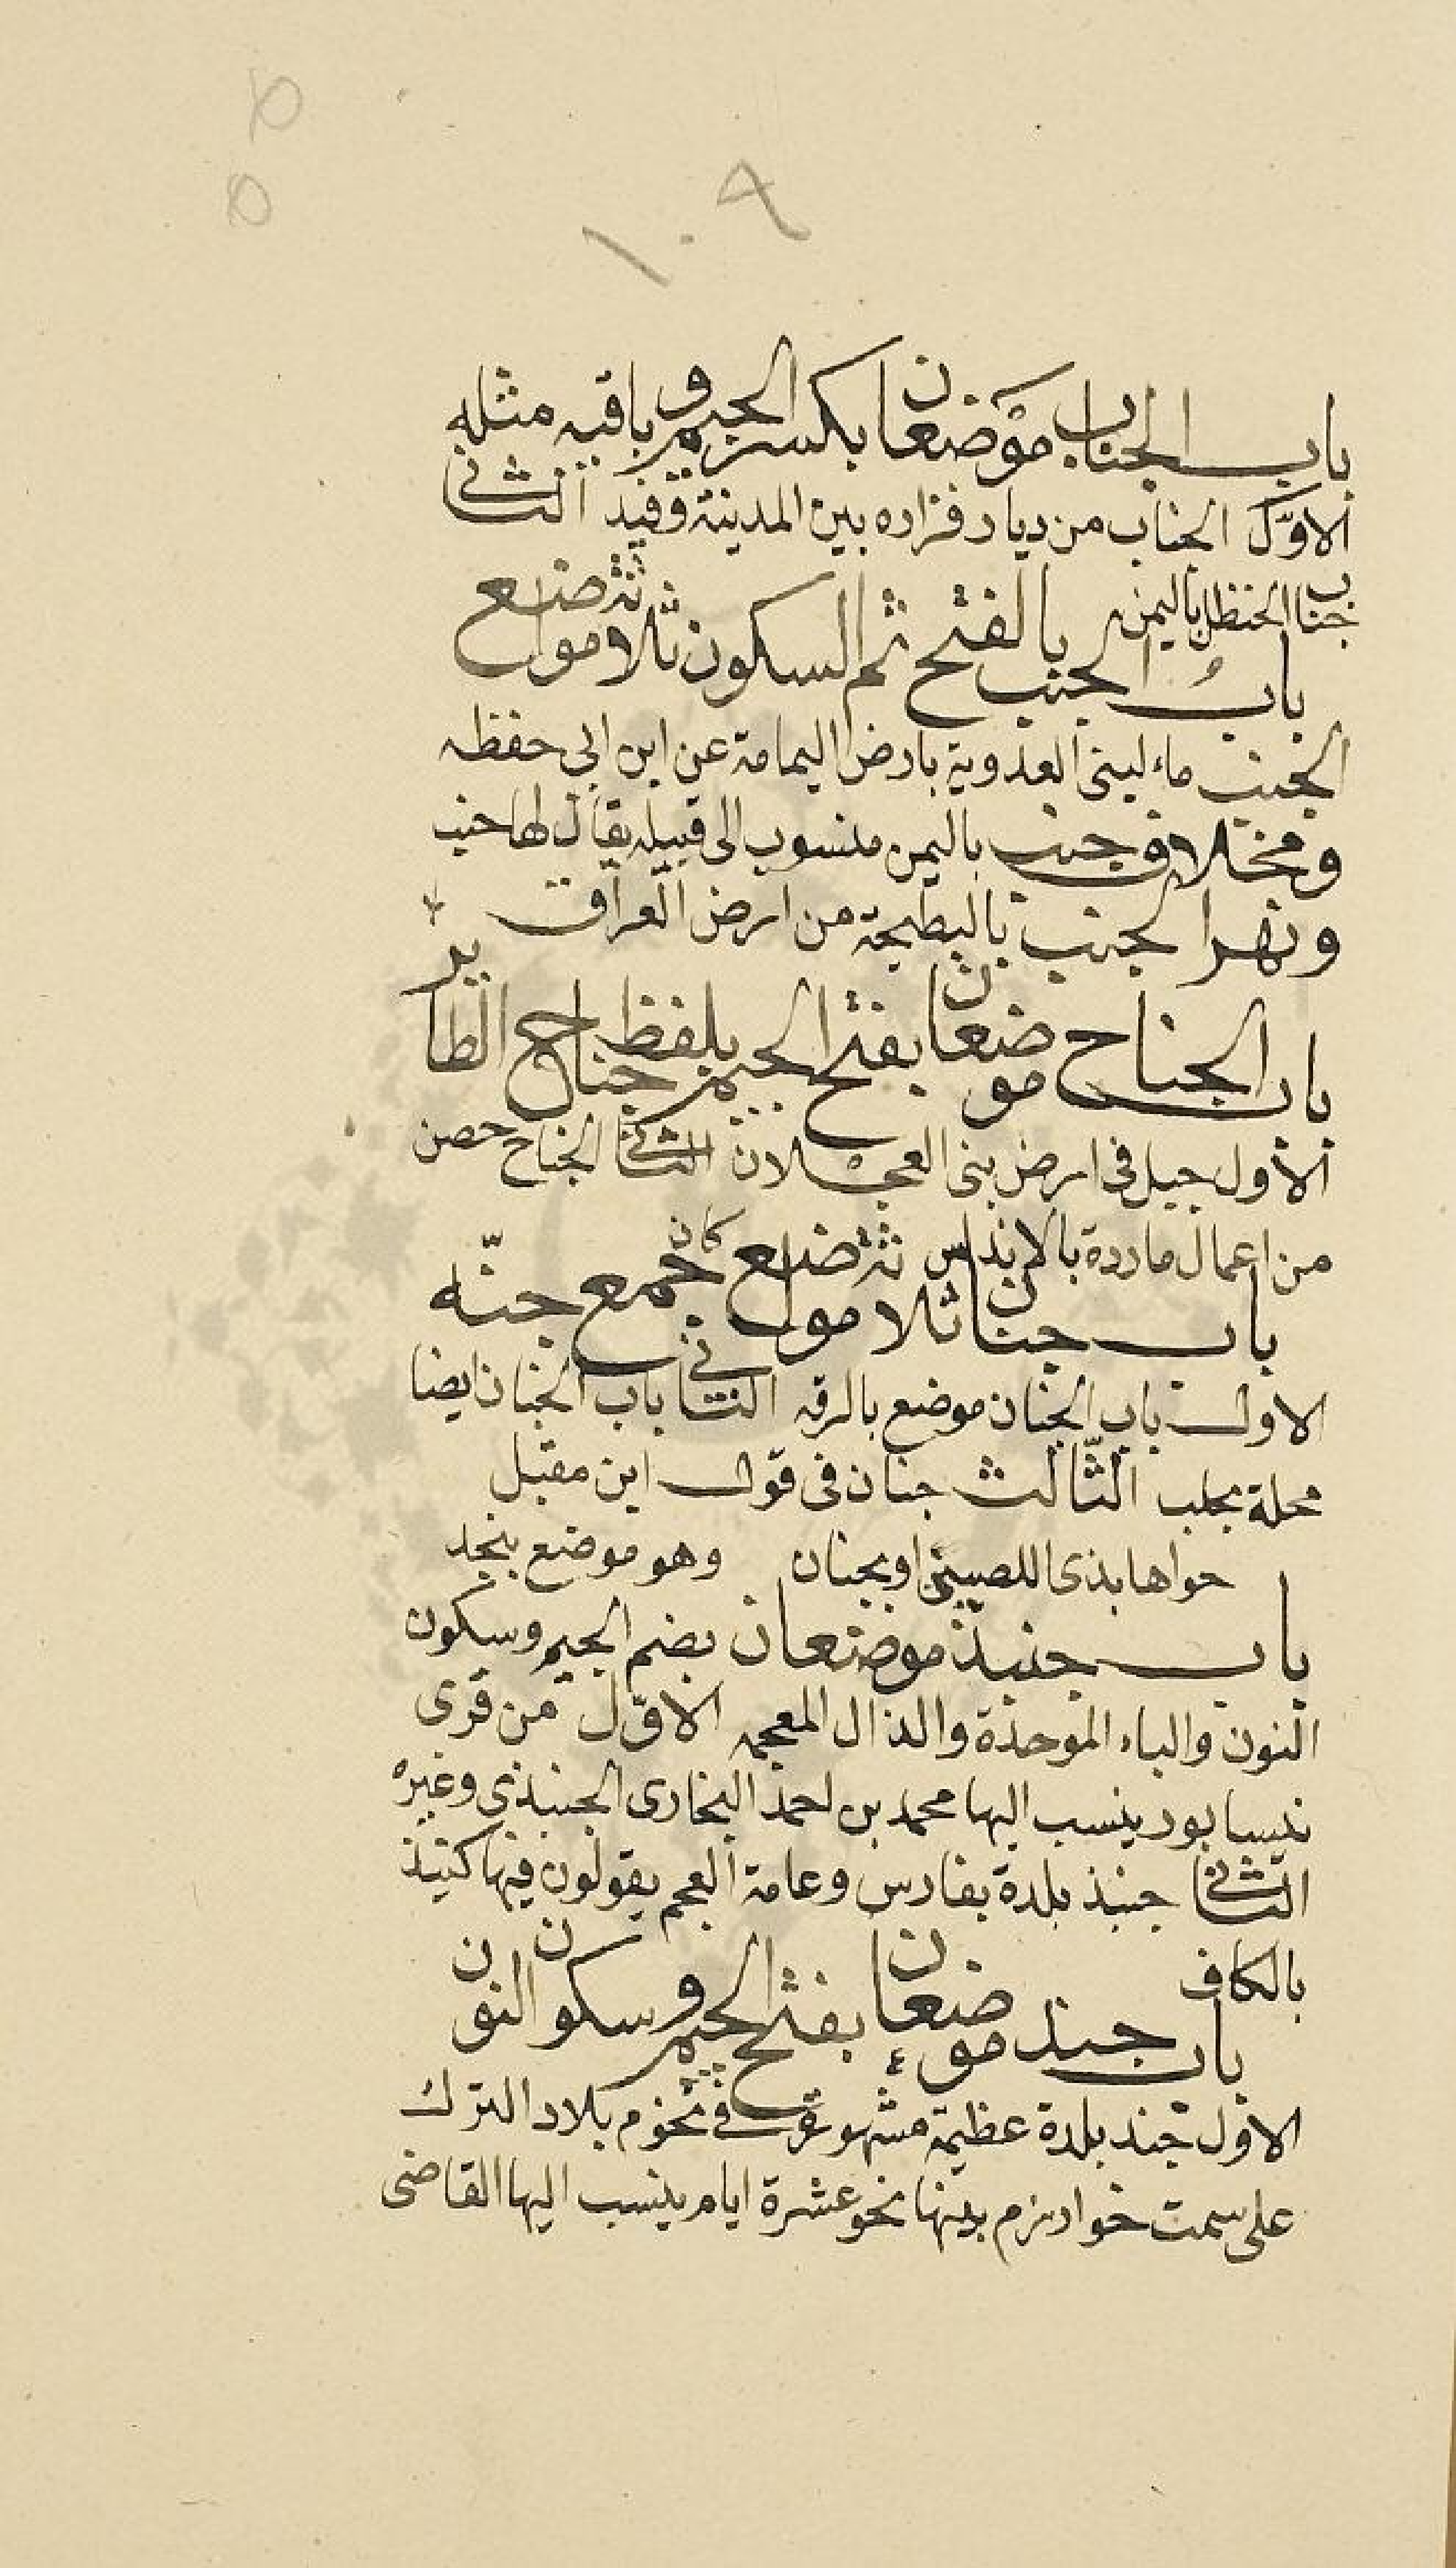 ١٠٩
باب الجناب موضعان بكسر الجيم وباقيه مثله
الاوّل الجناب من ديار فزاره بين المدينة وفيد الثاني
جناب الحنظل باليمن
باب الجنب بالفتح ثم السكون ثلاثة مواضع
الجنب ماء لبنى العدوية بارض اليمامة عن ابن ابي حفظه
ومخلاف جنب باليمن منسوب الى قبيله يقال لها جنب
ونهر الجنب بالبطيحة من ارض العراق
باب الجناح موضعان بفتح الجيم بلفظ جناح الطاير
الأول جبل فى ارض بنى العجلان الثاني الجناح حصن
من اعمال ماردة بالاندلس
باب جنان ثلاثة مواضع كانه جمع جنّه
الاول باب الجنان موضع بالرقه الثاني باب الجنان ايضا
محلة بحلب الثّالث جنان فى قول ابن مقبل
حواها بذى اللصبين او بجنان وهو موضع بنجد
باب جنبذ موضعان بضم الجيم وسكون
النون والباء الموحدة والذال المعجمه الاوّل من قرى
نيسابور ينسب اليها محمد بن احمد البخارى الجنبذى وغيره
الثاني جنبذ بلدة بفارس وعامة العجم يقولون فيها كنبذ
بالكاف
باب جند موضعان بفتح الجيم وسكون النون
الاول جند بلدة عظيمة مشهورة في تخوم بلاد الترك
على سمت خوارزم بينها نحو عشرة ايام ينسب اليها القاضى